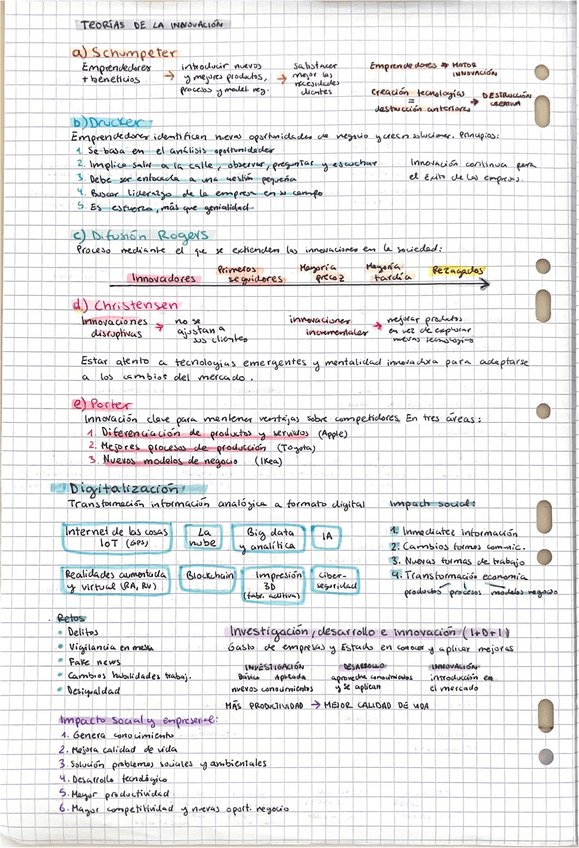 TEORÍAS DE LA INNOVACIÓN
a) Schumpeter
Emprendedores + beneficios → introducir nuevos y mejores productos, procesos y model. neg. → satisfacer mejor las necesidades clientes
Emprendedores → MOTOR INNOVACIÓN
Creación tecnologías = destrucción anteriores → DESTRUCCIÓN CREATIVA
b) Drucker
Emprendedores identifican nuevas oportunidades de negocio y crean soluciones. Principios:
1. Se basa en el análisis oportunidades
2. Implica salir a la calle, observar, preguntar y escuchar
3. Debe ser enfocada a una gestión pequeña
4. Buscar liderazgo de la empresa en su campo
5. Es esfuerzo, más que genialidad
Innovación continua para
el éxito de las empresas.
c) Difusión Rogers
Proceso mediante el que se extienden las innovaciones en la sociedad:
Innovadores
Primeros seguidores
Mayoría precoz
Mayoría tardía
Rezagados
d) Christensen
Innovaciones disruptivas → no se ajustan a sus clientes
innovaciones incrementales → mejorar productos en vez de explorar nuevas tecnologías
Estar atento a tecnologías emergentes y mentalidad innovadora para adaptarse
a los cambios del mercado.
e) Porter
Innovación clave para mantener ventajas sobre competidores. En tres áreas:
1. Diferenciación de productos y servicios (Apple)
2. Mejores procesos de producción (Toyota)
3. Nuevos modelos de negocio (Ikea)
Digitalización
Transformación información analógica a formato digital
Internet de las cosas
IoT (GPS)
La nube
Big data y analítica
IA
Realidades aumentada y virtual (RA, RV)
Blockchain
Impresión 3D
(fabr. aditiva)
Ciberseguridad
Impacto social:
1. Inmediatez información
2. Cambios formas comunic.
3. Nuevas formas de trabajo
4. Transformación economía
productos procesos modelos negocio
Retos
• Delitos
• Vigilancia en masa
• Fake news
• Cambios habilidades trabaj.
• Desigualdad
Investigación, desarrollo e innovación (I+D+I)
Gasto de empresas y Estado en conocer y aplicar mejoras
INVESTIGACIÓN
Básica Aplicada
nuevos conocimientos
DESARROLLO
aprovecha conocimientos
y se aplican
INNOVACIÓN
introducción en
el mercado
MÁS PRODUCTIVIDAD → MEJOR CALIDAD DE VIDA
Impacto social y empresarial:
1. Genera conocimiento
2. Mejora calidad de vida
3. Solución problemas sociales y ambientales
4. Desarrollo tecnológico
5. Mayor productividad
6. Mayor competitividad y nuevas oport. negocio